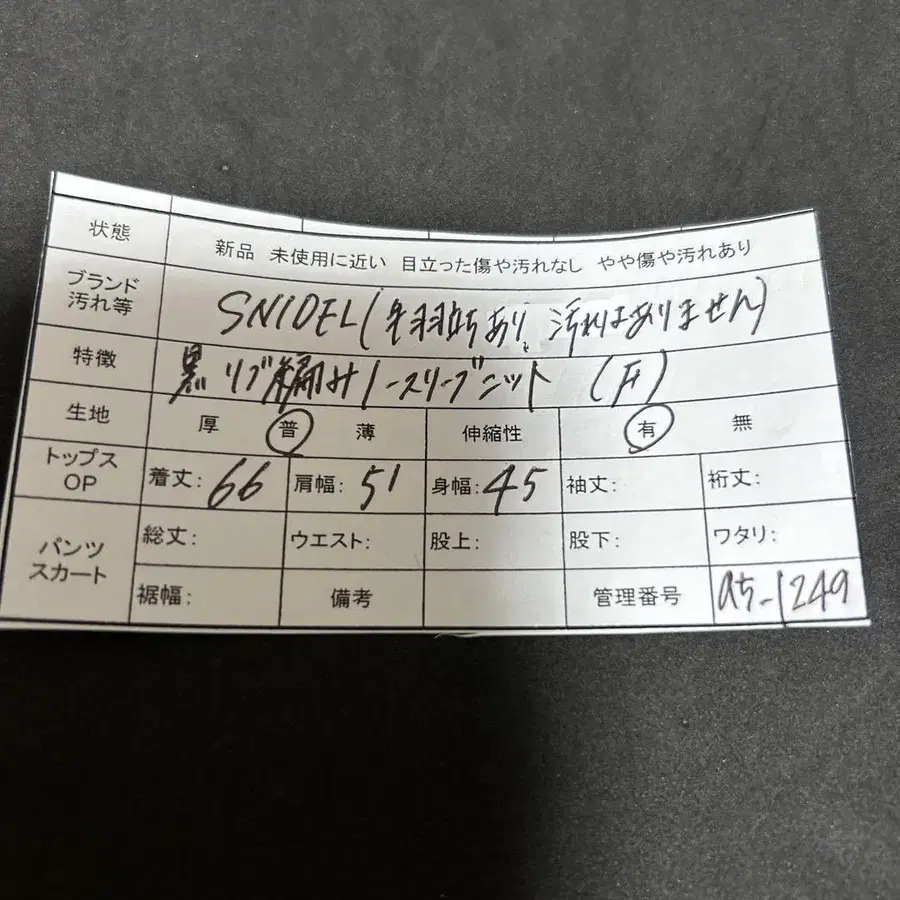 状態 新品 未使用に近い 目立った傷や汚れなし やや傷や汚れあり
ブランド
汚れ等 SNIDEL(あり、汚れはありません)
特徴 黒リブ編みノースリーブニット (F)
生地 厚 普 薄 伸縮性 有 無
トップス
OP 着丈: 66 肩幅: 51 身幅: 45 袖丈: 裄丈:
パンツ
スカート 総丈: ウエスト: 股上: 股下: ワタリ:
裾幅: 備考 管理番号 a5-1249